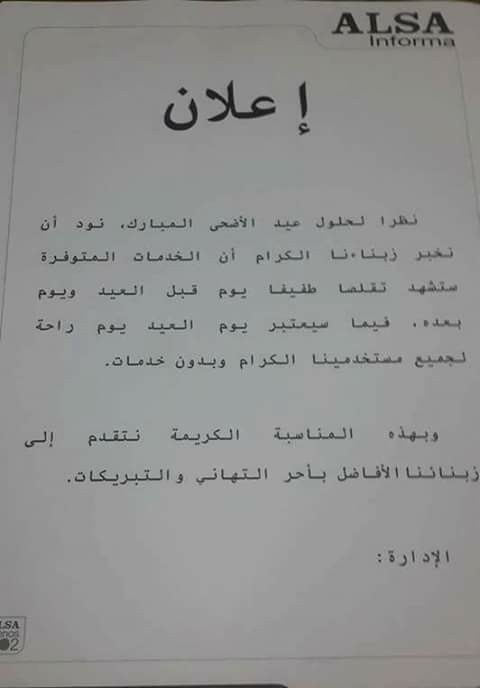 ALSA
Informa
إعلان
نظرا لحلول عيد الأضحى المبارك، نود أن
نخبر زبناءنا الكرام أن الخدمات المتوفرة
ستشهد تقلصا طفيفا يوم قبل العيد ويوم
بعده، فيما سيعتبر يوم العيد يوم راحة
لجميع مستخدمينا الكرام وبدون خدمات.
وبهذه المناسبة الكريمة نتقدم إلى
زبنائنا الأفاضل بأحر التهاني والتبريكات.
الإدارة: